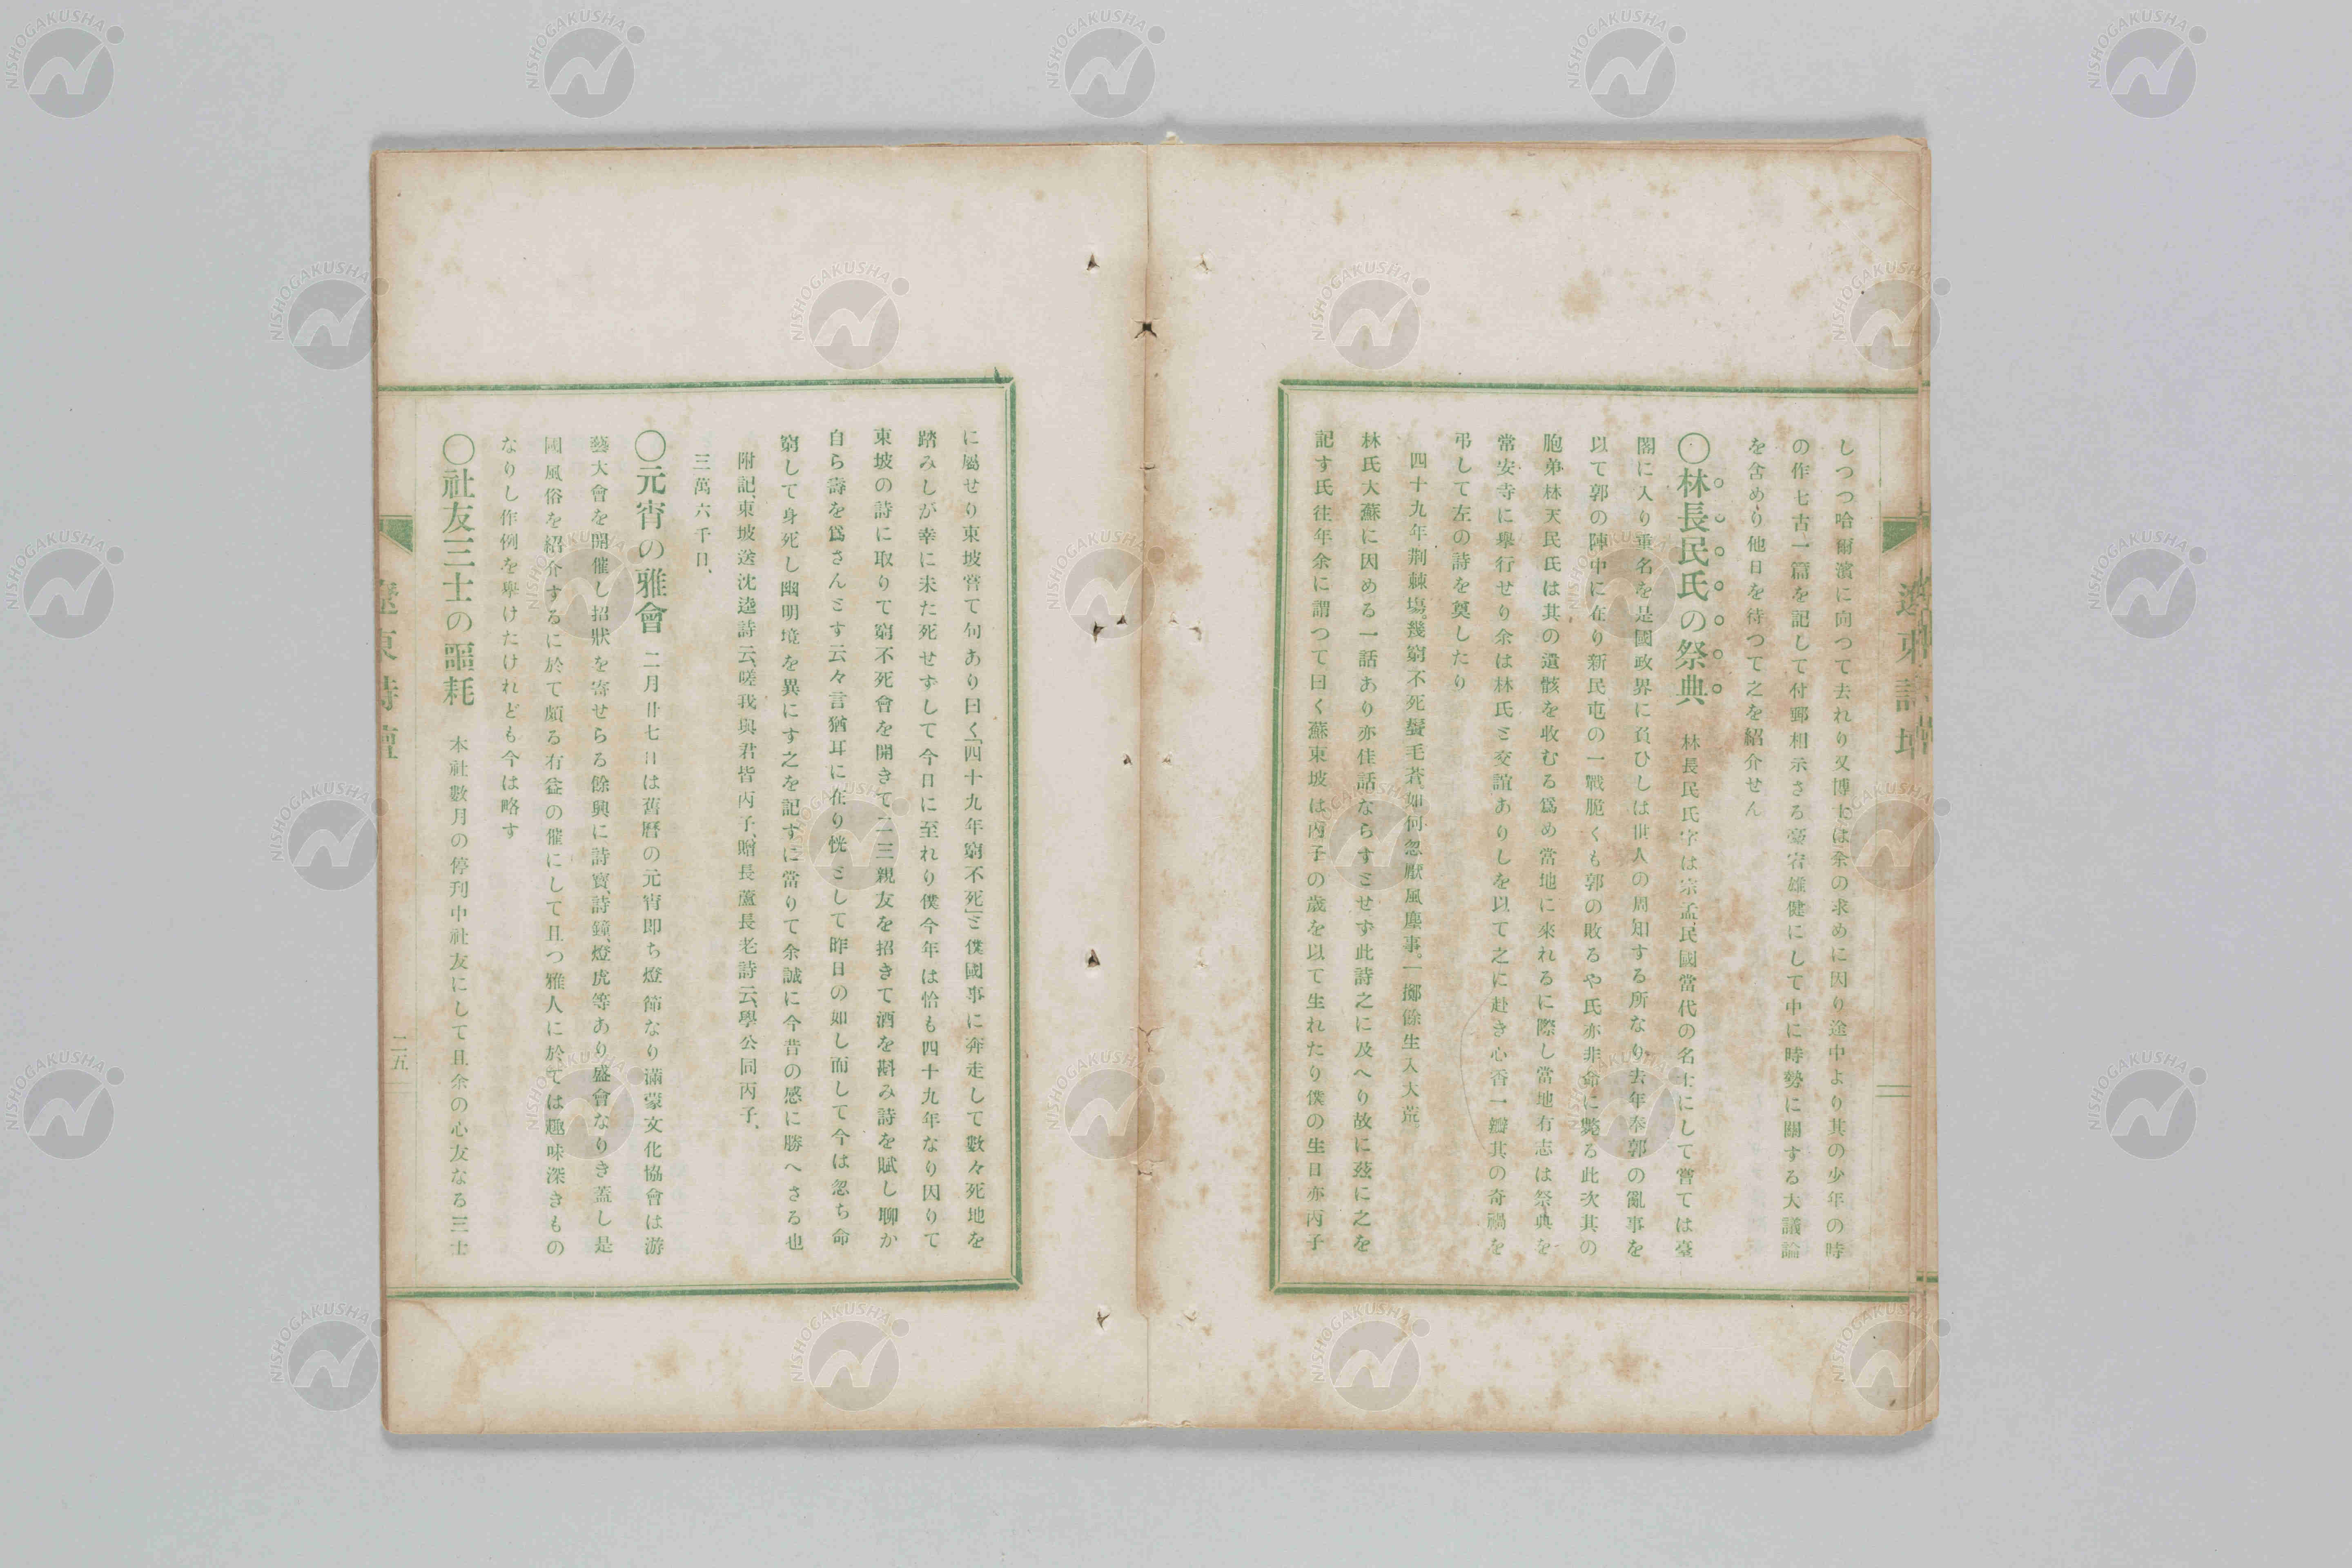 しつつ哈爾濱に向つて去れり又博士は余の求めに因り途中より其の少年の時
の作七古一篇を記して付郵相示さる豪宕雄健にして中に時勢に關する大議論
を含めり他日を待つて之を紹介せん
〇林長民氏の祭典 林長民氏字は宗孟民國當代の名士にして嘗ては臺
閣に入り重名を是國政界に負ひしは世人の周知する所なり去年奉郭の亂事を
以て郭の陣中に在り新民屯の一戰脆くも郭の敗るや氏亦非命に斃る此次其の
胞弟林天民氏は其の遺骸を收むる爲め當地に來れるに際し當地有志は祭典を
常安寺に擧行せり余は林氏と交誼ありしを以て之に赴き心香一瓣其の奇禍を
弔して左の詩を奠したり
四十九年荆棘塲。幾窮不死鬢毛蒼如何忽厭風塵事。一擲餘生入大荒
林氏大蘇に因める一話あり亦佳話ならずとせず此詩之に及へり故に玆に之を
記す氏往年余に謂つて曰く蘇東坡は丙子の歳を以て生れたり僕の生日亦丙子
に屬せり東坡嘗て句あり曰く「四十九年窮不死」と僕國事に奔走して數々死地を
踏みしが幸に未た死せずして今日に至れり僕今年は恰も四十九年なり因りて
東坡の詩に取りて窮不死會を開きて二三親友を招きて酒を斟み詩を賦し聊か
自ら壽を爲さんとす云々言猶耳に在り恍として昨日の如し而して今は忽ち命
窮して身死し幽明境を異にす之を記すに當りて余誠に今昔の感に勝へさる也
附記、東坡送沈逵詩云、嗟我與君皆丙子、贈長蘆長老詩云、與公同丙子、
三萬六千日、
〇元宵の雅會 二月廿七日は舊曆の元宵即ち燈節なり滿蒙文化協會は游
藝大會を開催し招狀を寄せらる餘興に詩寶、詩鐘、燈虎等あり盛會なりき蓋し是
國風俗を紹介するに於て頗る有益の催にして且つ雅人に於ては趣味深きもの
なりし作例を擧けたけれども今は略す
〇社友三士の謳耗 本社數月の停刋中社友にして且余の心友なる三士
遼東詩壇
二五
遼東詩壇
NISHOGAKUSHA